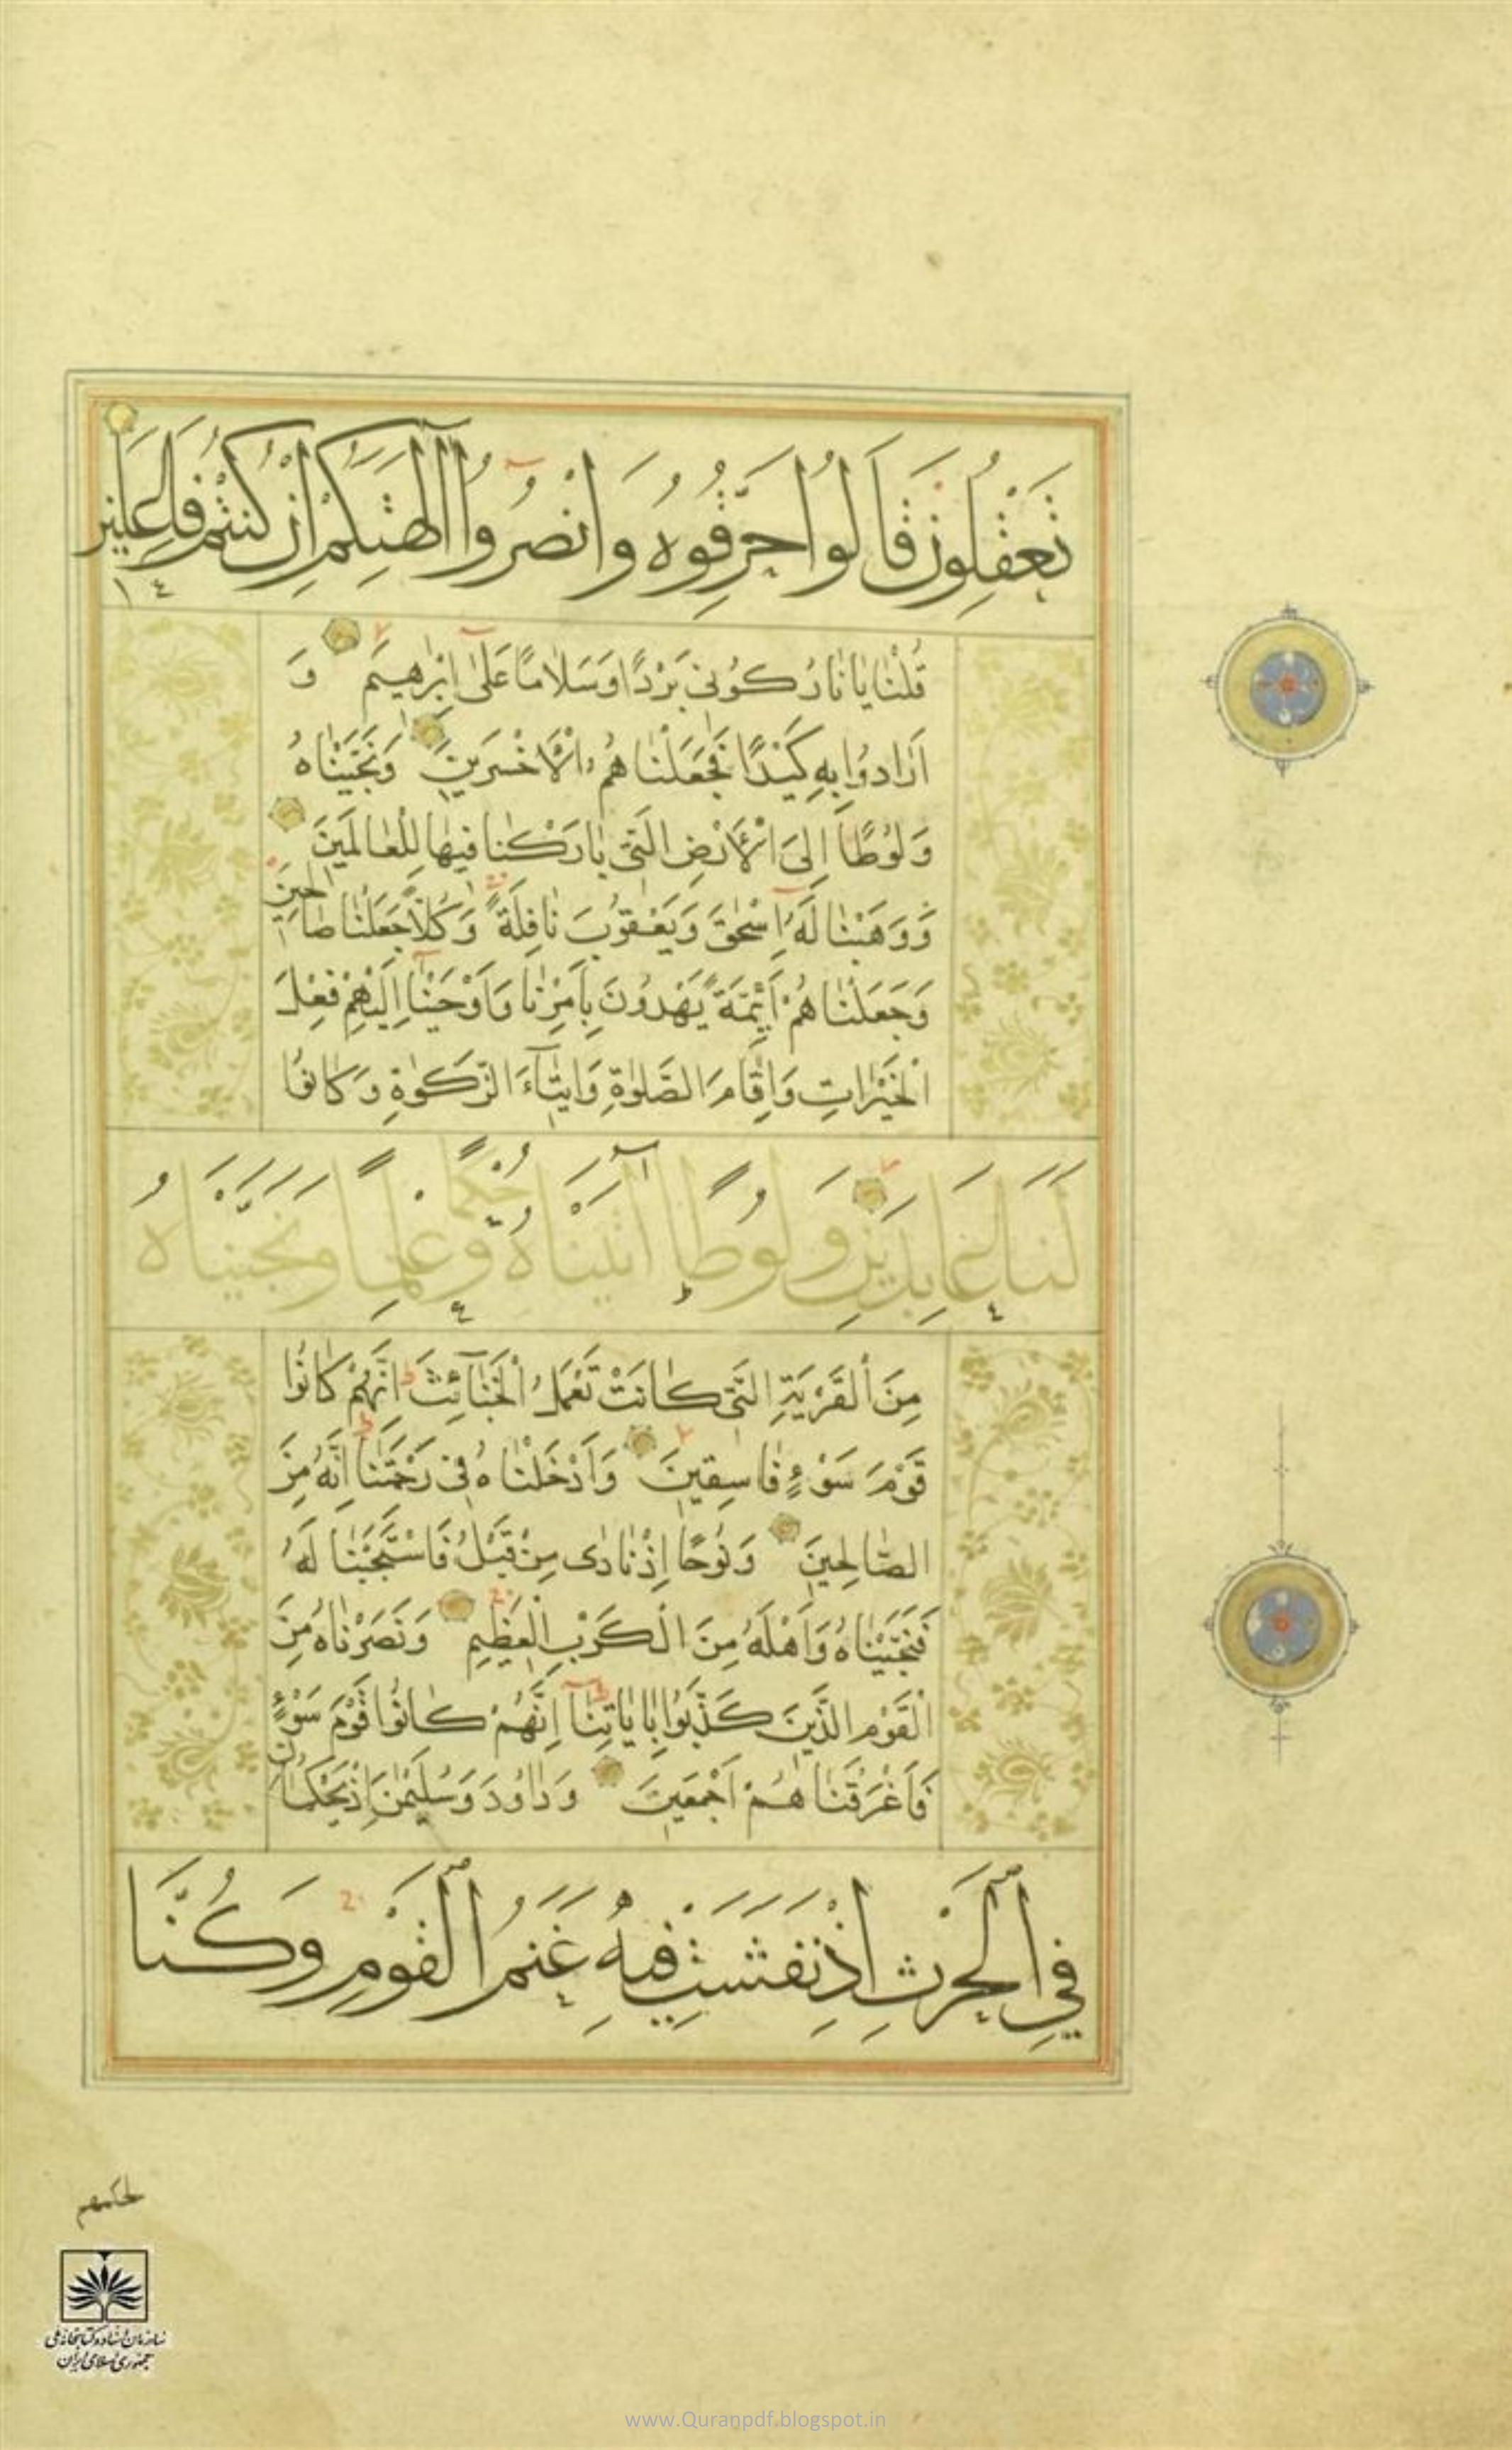 تَعْقِلُونَ قَالُوا حَرِّقُوهُ وَانْصُرُوا آلِهَتَكُمْ اِنْ كُنْتُمْ فَاعِلِينَ
قُلْنَا يَا نَارُ كُونِي بَرْدًا وَسَلَامًا عَلٰى اِبْرٰهِيمَ وَ
اَرَادُوا بِهِ كَيْدًا فَجَعَلْنَاهُمُ الْاَخْسَرِينَ وَنَجَّيْنَاهُ
وَلُوطًا اِلَى الْاَرْضِ الَّتِي بَارَكْنَا فِيهَا لِلْعَالَمِينَ
وَوَهَبْنَا لَهُ اِسْحٰقَ وَيَعْقُوبَ نَافِلَةً وَكُلًّا جَعَلْنَا صَالِحِينَ
وَجَعَلْنَاهُمْ اَئِمَّةً يَهْدُونَ بِاَمْرِنَا وَاَوْحَيْنَا اِلَيْهِمْ فِعْلَ
الْخَيْرَاتِ وَاِقَامَ الصَّلٰوةِ وَاِيتَآءَ الزَّكٰوةِ وَكَانُوا
لَنَا عَابِدِينَ وَلُوطًا آتَيْنَاهُ حُكْمًا وَعِلْمًا وَنَجَّيْنَاهُ
مِنَ الْقَرْيَةِ الَّتِي كَانَتْ تَعْمَلُ الْخَبَآئِثَ اِنَّهُمْ كَانُوا
قَوْمَ سَوْءٍ فَاسِقِينَ وَاَدْخَلْنَاهُ فِي رَحْمَتِنَا اِنَّهُ مِنَ
الصَّالِحِينَ وَنُوحًا اِذْ نَادٰى مِنْ قَبْلُ فَاسْتَجَبْنَا لَهُ
فَنَجَّيْنَاهُ وَاَهْلَهُ مِنَ الْكَرْبِ الْعَظِيمِ وَنَصَرْنَاهُ مِنَ
الْقَوْمِ الَّذِينَ كَذَّبُوا بِاٰيَاتِنَا اِنَّهُمْ كَانُوا قَوْمَ سَوْءٍ
فَاَغْرَقْنَاهُمْ اَجْمَعِينَ وَدَاوُدَ وَسُلَيْمٰنَ اِذْ يَحْكُمَانِ
فِي الْحَرْثِ اِذْ نَفَشَتْ فِيهِ غَنَمُ الْقَوْمِ وَكُنَّا
لحكمهم
سازمان اسناد و کتابخانه ملی
جمهوری اسلامی ایران
www.Quranpdf.blogspot.in